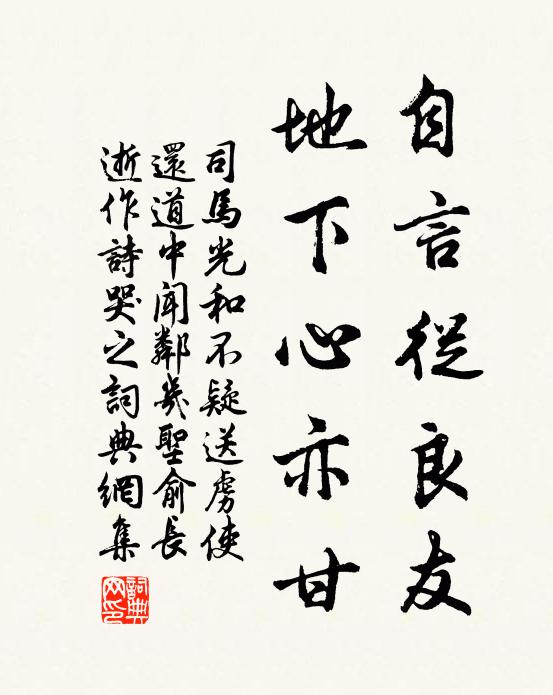 自言從良友
地下心亦甘
司馬光和不疑送虜使
還道中聞鄰幾聖俞長
逝作詩哭之詞典網集
詞典
网印